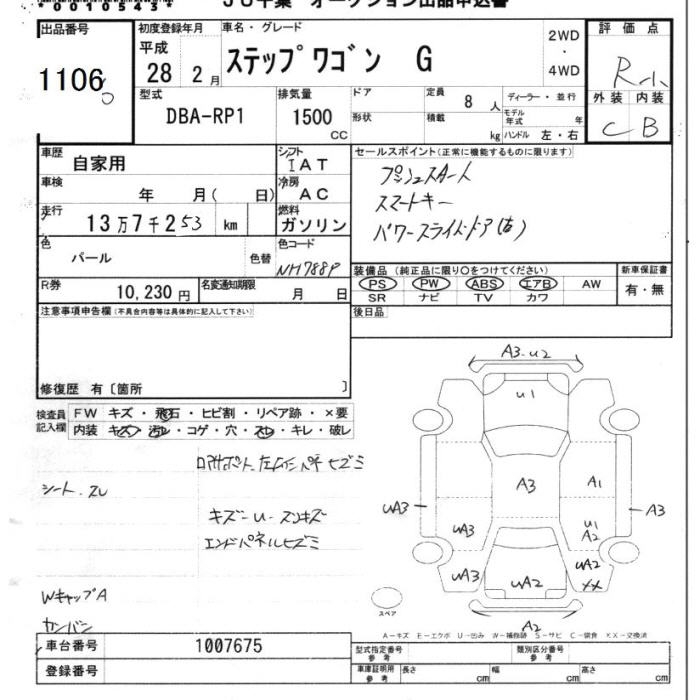 出品番号
1106
初度登録年月
平成
28 2 月
車名・グレード
ステップワゴン G
2WD
・
4WD
評価点
R-1
外装 内装
C B
型式
DBA-RP1
排気量
1500
CC
ドア
形状
定員
8 人
積載
kg
ディーラー・並行
モデル年式 年
ハンドル 左・右
車歴
自家用
シフト
IAT
車検
年 月( 日)
冷房
AC
走行
13万7千253 km
燃料
ガソリン
色
パール
色替
色コード
NH788P
R券
10,230 円
名変通知期限
月 日
セールスポイント(正常に機能するものに限ります)
プッシュスタート
スマートキー
パワースライドドア(右)
装備品 (純正品に限り○をつけてください)
PS PW ABS エアB AW
SR ナビ TV カワ
新車保証書
有・無
後日品
注意事項申告欄(不具合内容等は具体的に記入して下さい)
修復歴 有〔箇所 〕
検査員記入欄
FW キズ・飛石・ヒビ割・リペア跡・×要
内装 キズ・汚レ・コゲ・穴・スレ・キレ・破レ
シート スレ
キズ-U- スリキズ
エンドパネルヒズミ
WキャップA
カンバン
A3-U2
U1
A3
A1
UA3
A3
UA3
U1
A2
UA3
UA2
UA2
XX
A2
スペア
A-キズ E-エクボ U-凹み W-補修跡 S-サビ C-腐食 XX-交換済
車台番号
1007675
登録番号
型式指定番号
参考
類別区分番号
参考
車庫証明用
参考
長さ cm
幅 cm
高さ cm